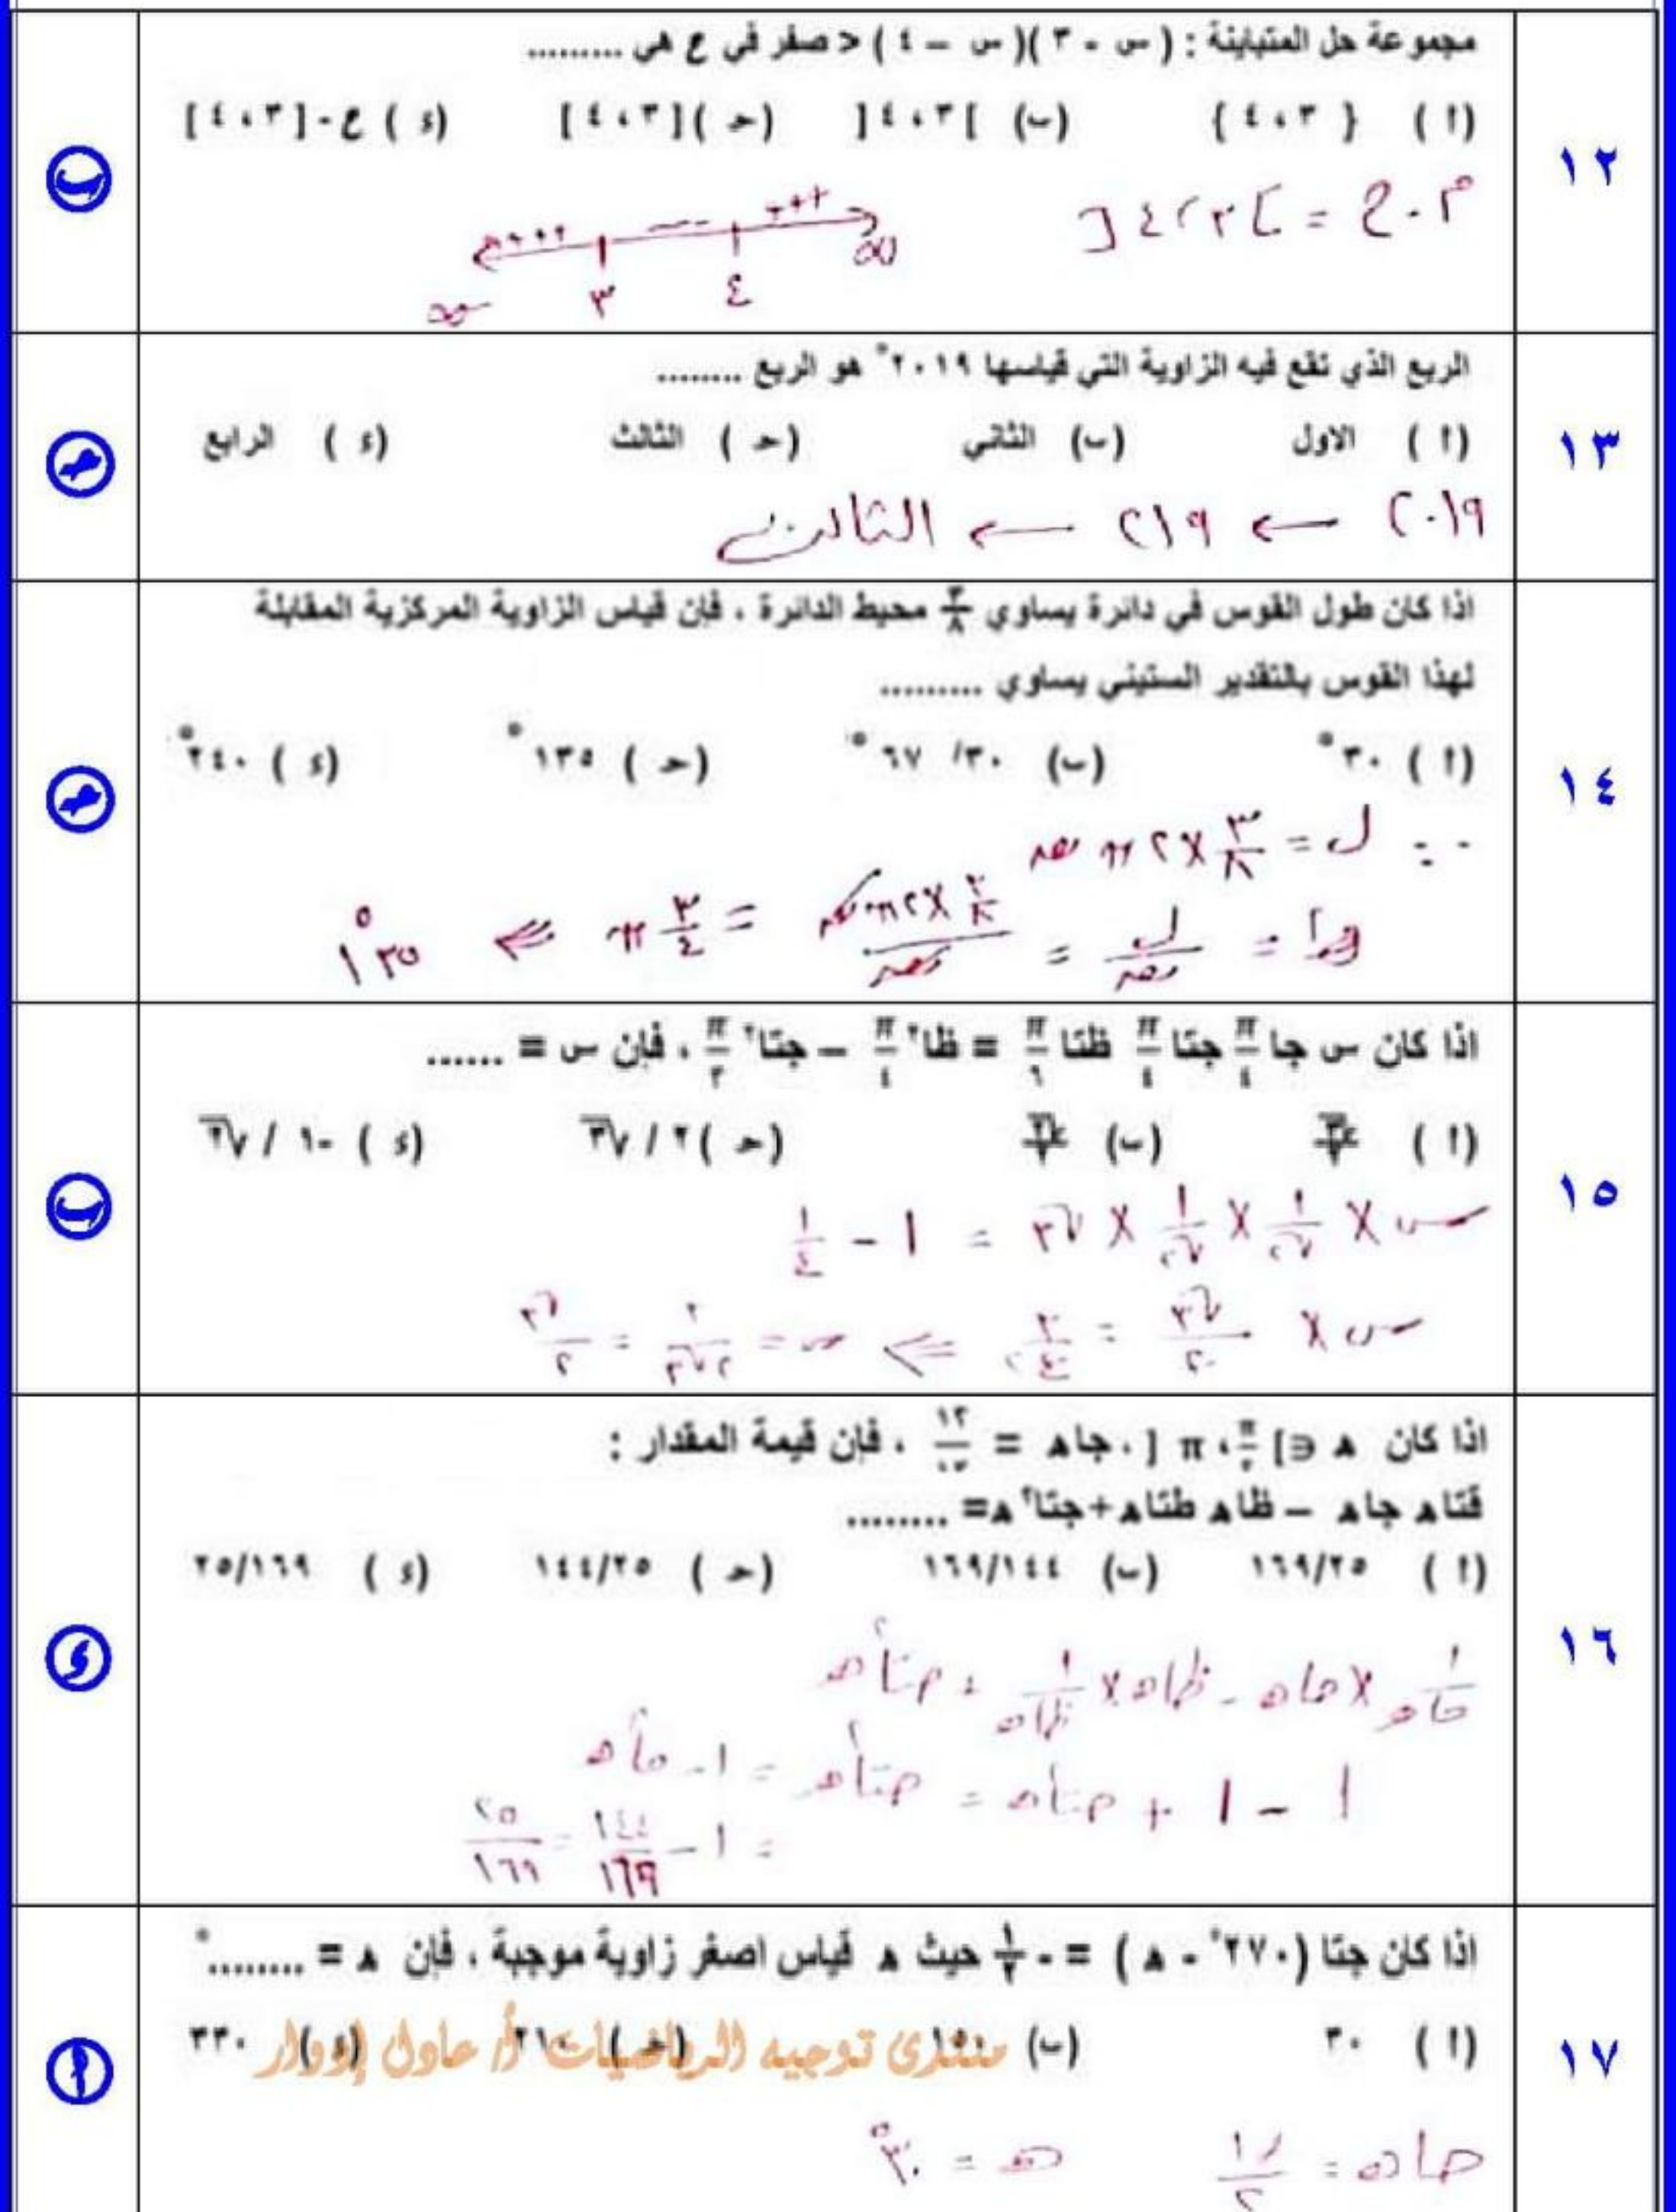 ١٢
مجموعة حل المتباينة : ( س - ٣ )( س – ٤ ) < صفر في ع هي .........
( أ ) { ٣ ، ٤ } (ب) ]٣ ، ٤[ (حـ) [٣ ، ٤] ( ء ) ع-[٣ ، ٤]
م . ح = ]٣ ، ٤[
+++ --- +++
-∞ ٣ ٤ ∞
ب
١٣
الربع الذي تقع فيه الزاوية التي قياسها ٢٠١٩° هو الربع ........
( أ ) الاول (ب) الثاني ( حـ ) الثالث ( ء ) الرابع
٢٠١٩ ← ٢١٩ ← الثالث
حـ
١٤
اذا كان طول القوس في دائرة يساوي ٣/٨ محيط الدائرة ، فإن قياس الزاوية المركزية المقابلة
لهذا القوس بالتقدير الستيني يساوي .........
( أ ) ٣٠° (ب) ٣٠/ ٦٧° ( حـ ) ١٣٥° ( ء ) ٢٤٠°
∵ ل = ٣/٨ × ٢ π نق
هـ = ل/نق = ٣/٨ × ٢ π نق/نق = ٣/٤ π ⇐ ١٣٥°
حـ
١٥
اذا كان س جا π/٤ جتا π/٤ ظتا π/٦ = ظا٢ π/٤ – جتا٢ π/٣ ، فإن س = ......
( أ ) (ب) ( حـ ) ٢ / √٣ ( ء ) -١ / √٢
س × ١/√٢ × ١/√٢ × √٣ = ١ - ١/٤
س × √٣/٢ = ٣/٤ ⇐ س = ٣/٢√٣ = √٣/٢
ب
١٦
اذا كان هـ ∈] π/٢ ، π [ ، جاهـ = ١٢/١٣ ، فإن قيمة المقدار :
قتاهـ جاهـ – ظاهـ طتاهـ+جتا٢ هـ= ........
( أ ) ١٦٩/٢٥ (ب) ١٦٩/١٤٤ ( حـ ) ١٤٤/٢٥ ( ء ) ٢٥/١٦٩
١/حاهـ × حاهـ - ظاهـ × ١/ظاهـ + حتا٢هـ
١ - ١ + حتا٢هـ = حتا٢هـ = ١ - حا٢هـ
= ١ - ١٤٤/١٦٩ = ٢٥/١٦٩
ء
١٧
اذا كان جتا (٢٧٠° - هـ ) = - ١/٢ حيث هـ قياس اصغر زاوية موجبة ، فإن هـ = ........°
( أ ) ٣٠ (ب) ١٥٠ ( حـ ) ٢١٠ ( ء ) ٣٣٠
منتدى توجيه الرياضيات أ/ عادل إدوار
حاهـ = ١/٢ هـ = ٣٠°
أ